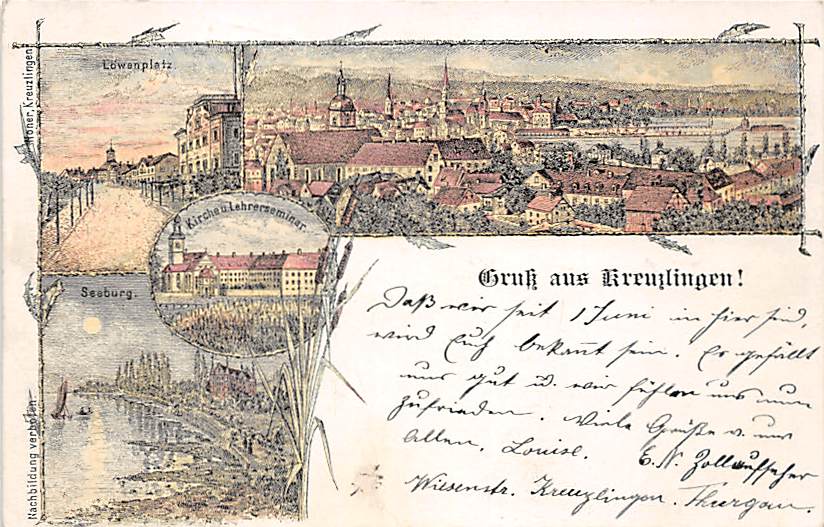 Löwenplatz
Kirche u. Lehrerseminar.
Seeburg.
Kreuzlingen
Nachbildung verboten
Gruß aus Kreuzlingen!
Daß wir seit 1 Juni in hier sind,
wird Euch bekannt sein. Es gefällt
uns gut u. wir fühlen uns nun
zufrieden. Viele Grüße v. uns
allen, Louise. E. N. Zollaufseher
Wiesenstr. Kreuzlingen. Thurgau.